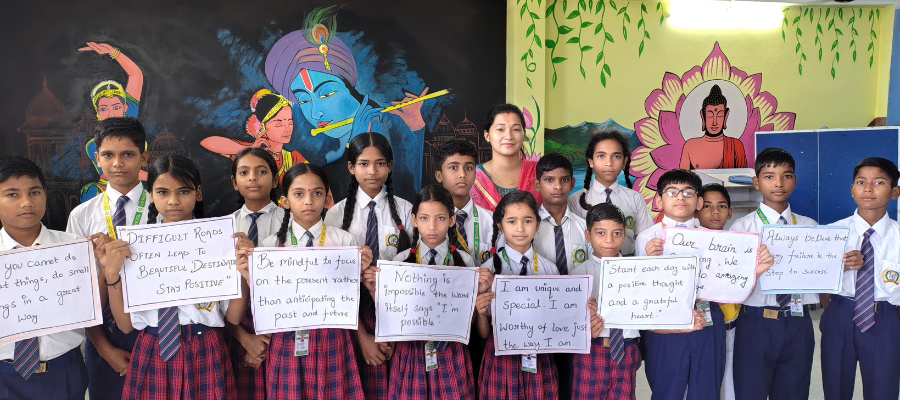 you cannot do
at thing, do small
ngs in a great
way
"DIFFICULT ROADS
OFTEN LEAD TO
BEAUTIFUL DESTINAT
STAY POSITIVE"
Be mindful to focus
on the present rather
than anticipating the
past and future
Nothing is
impossible the word
itself says "I'm
possible."
I am unique and
special I am
worthy of love just
the way I am.
Start each day with
a positive thought
and a grateful
heart."
Our brain is
We
to
amazing
Always believe that
failure is the
step to success